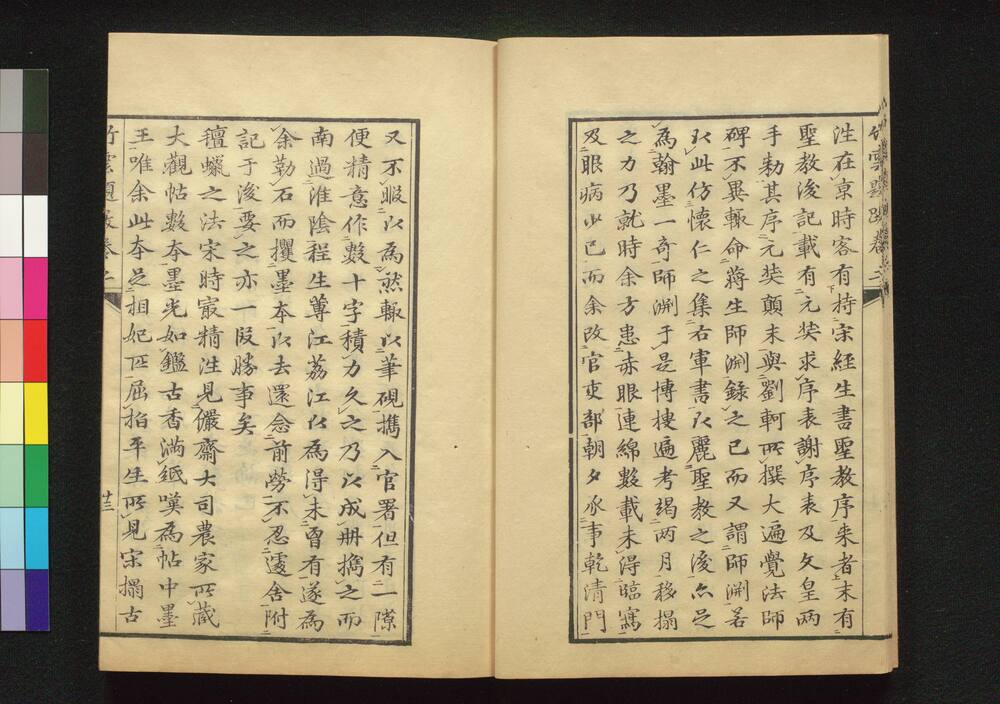 竹雲題跋卷二
泩在京時客有持宋經生書聖教序来者末有
聖教後記載有元奘求序表謝序表及文皇兩
手勅其序元奘顛末與劉軻所撰大遍覺法師
碑不異輙命蔣生師渊録之已而又謂師渊若
以此仿懷仁之集右軍書以麗聖教之後亦足
為翰墨一奇師渊于是博搜遍考竭兩月移搨
之力乃就時余方患赤眼連綿數載未得臨寫
及眼病少已而余改官吏部朝夕承事乾清門
又不暇以為然輙以筆硯攜入官署但有一隙
便精意作數十字積力久之乃以成册攜之而
南過淮陰程生蓴江荔江以為得未曾有遂為
余勒石而攫墨本以去還念前勞不忍遽舍附
記于後要之亦一段勝事矣
氊蠟之法宋時最精泩見儼齋大司農家所藏
大觀帖數本墨光如鑑古香滿紙嘆為帖中墨
王唯余此本足相妃匹屈指平生所見宋搨古
竹雲題跋卷之
廿三